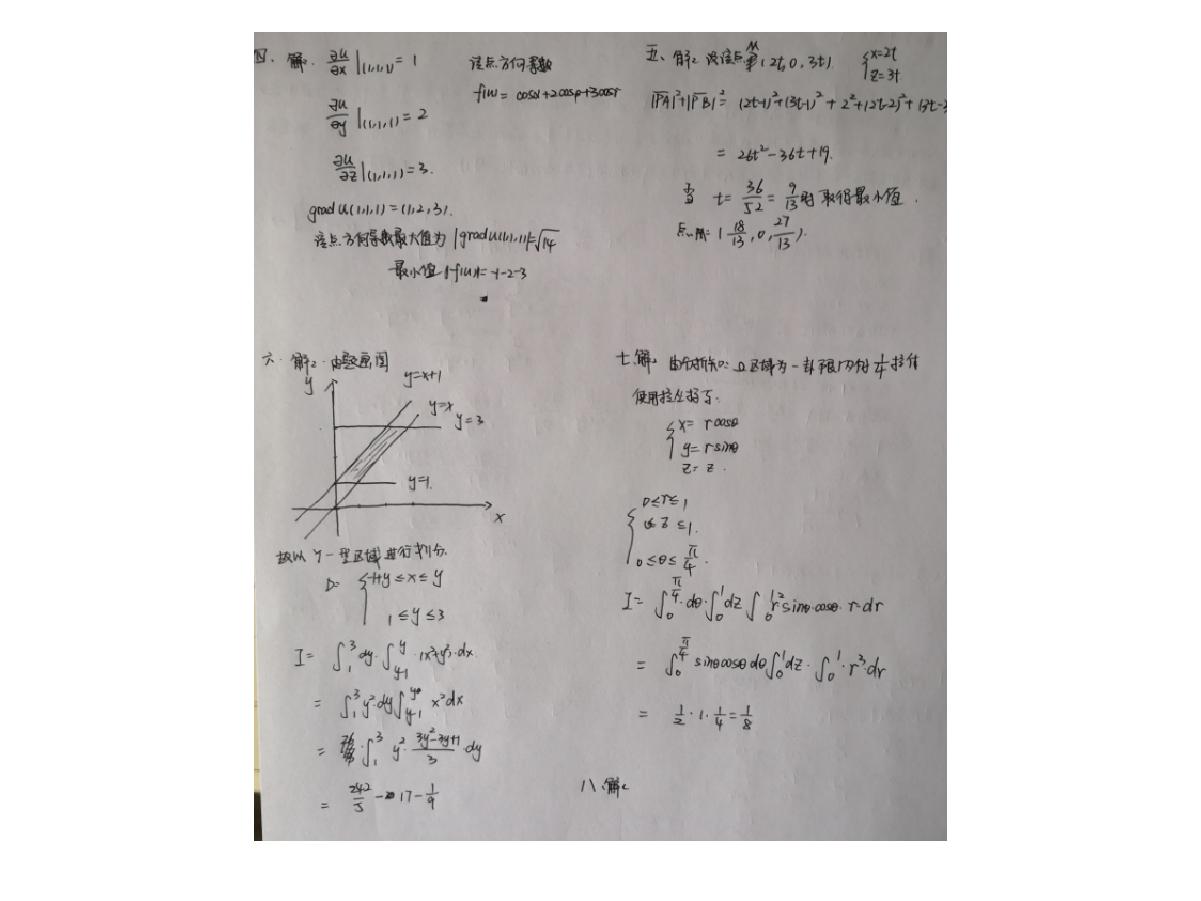 四、解: ∂u/∂x |(1,1,1) = 1
该点方向导数
f(u) = cosα+2cosβ+3cosγ
∂u/∂y |(1,1,1) = 2
∂u/∂z |(1,1,1) = 3.
grad u(1,1,1) = (1,2,3).
该点方向导数最大值为 |grad u(1,1,1)|=√14
最小值 = -1-2-3
五、解: 设该点M(2t,0,3t) {x=2t
z=3t
|PA|²+|PB|² = (2t-1)²+(3t-1)²+2²+(2t-2)²+(3t-3
= 26t²-36t+19.
当 t= 36/52 = 9/13 时 取得最小值.
(18/13, 0, 27/13).
六、解: 由题画图
y y=x+1
y=x
y=3
y=1.
x
故以 Y-型区域进行划分.
D= { -1+y ≤ x ≤ y
1 ≤ y ≤ 3
I= ∫₁³ dy·∫_{y-1}^{y} (x²+y²)·dx
= ∫₁³ y²·dy ∫_{y-1}^{y} x²dx
= ∫₁³ y²· (3y²-3y+1)/3 ·dy
= 242/5 - 17 - 1/9
七、解: 由分析知: Ω区域为一
使用柱坐标下.
{ x= rcosθ
y= rsinθ
z= z.
{ 0≤r≤1
≤1.
0≤θ≤ π/4.
I= ∫₀^{π/4} dθ·∫₀¹dz ∫₀¹ r²·sinθ·cosθ·r·dr
= ∫₀^{π/4} sinθcosθ dθ ∫₀¹dz·∫₀¹·r³·dr
= 1/2·1·1/4 = 1/8
八、解: